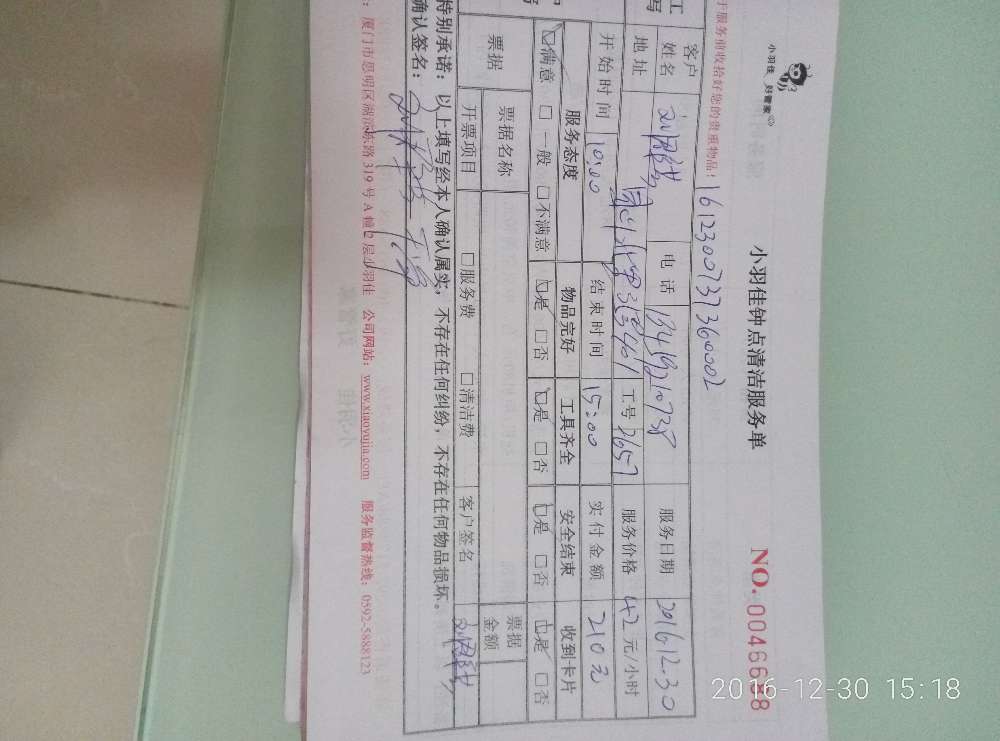 小羽佳 好管家
小羽佳钟点清洁服务单
NO. 0046698
于服务前收拾好您的贵重物品!
161230073736002
工
写
客户
姓名
电 话
13459210738
服务日期
2016.12.30
地 址
401
工号
2657
服务价格
42 元/小时
开始时间
10:00
结束时间
15:00
实付金额
210元
服务态度
物品完好
工具齐全
安全结束
收到卡片
满意 □ 一般 □ 不满意
是 □ 否
是 □ 否
是 □ 否
是 □ 否
票据
票据名称
票据
金额
开票项目
□ 服务费
□ 清洁费
客户签名
特别承诺:以上填写经本人确认属实,不存在任何纠纷,不存在任何物品损坏。
确认签名:
:厦门市思明区湖滨东路 319 号 A 幢 2 层小羽佳 公司网站:www.xiaoyujia.com 服务监督热线:0592-5888123
2016-12-30 15:18